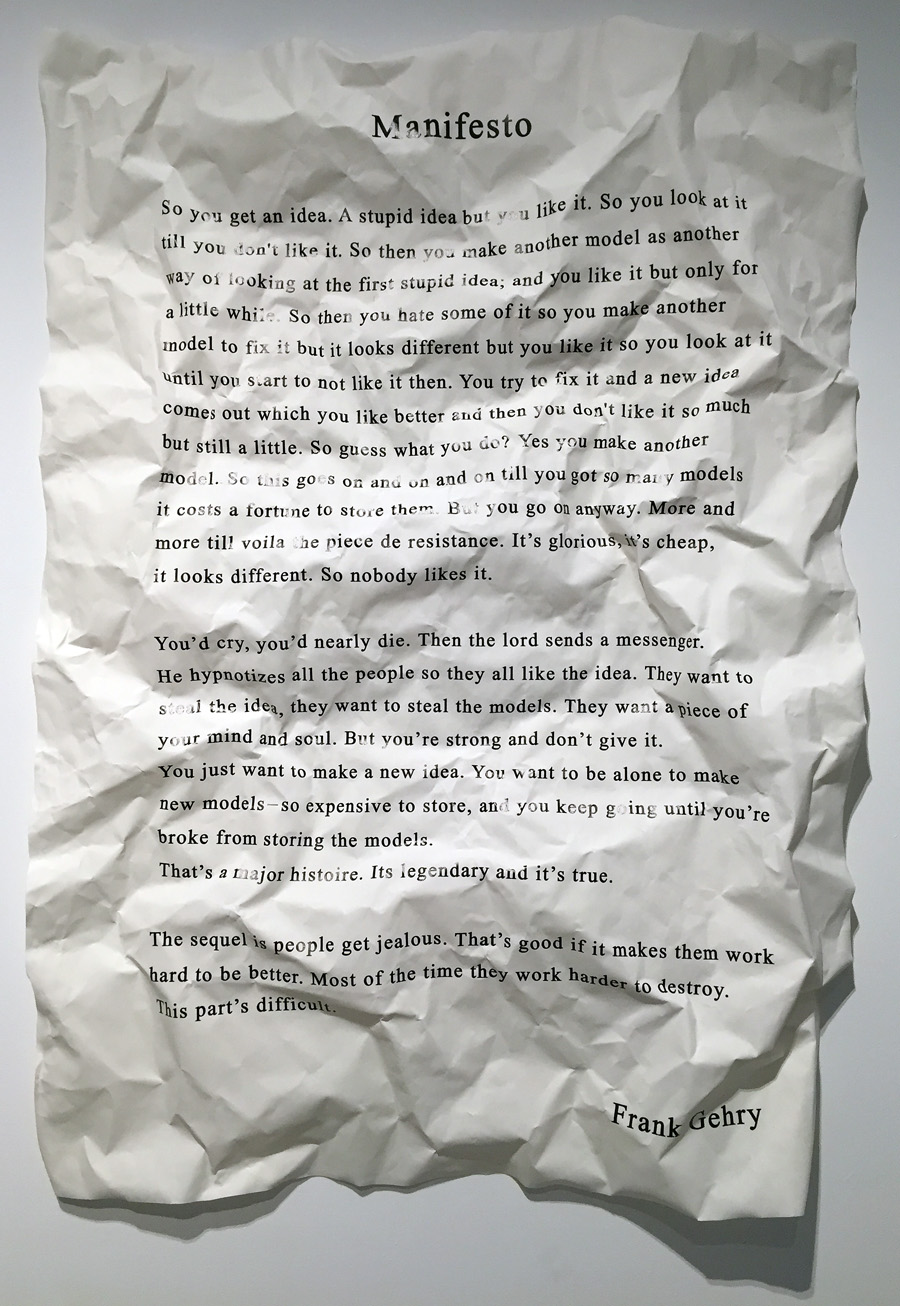 Manifesto
So you get an idea. A stupid idea but you like it. So you look at it
till you don't like it. So then you make another model as another
way of looking at the first stupid idea; and you like it but only for
a little while. So then you hate some of it so you make another
model to fix it but it looks different but you like it so you look at it
until you start to not like it then. You try to fix it and a new idea
comes out which you like better and then you don't like it so much
but still a little. So guess what you do? Yes you make another
model. So this goes on and on and on till you got so many models
it costs a fortune to store them. But you go on anyway. More and
more till voila the piece de resistance. It's glorious, it's cheap,
it looks different. So nobody likes it.
You'd cry, you'd nearly die. Then the lord sends a messenger.
He hypnotizes all the people so they all like the idea. They want to
steal the idea, they want to steal the models. They want a piece of
your mind and soul. But you're strong and don't give it.
You just want to make a new idea. You want to be alone to make
new models—so expensive to store, and you keep going until you're
broke from storing the models.
That's a major histoire. Its legendary and it's true.
The sequel is people get jealous. That's good if it makes them work
hard to be better. Most of the time they work harder to destroy.
This part's difficult.
Frank Gehry